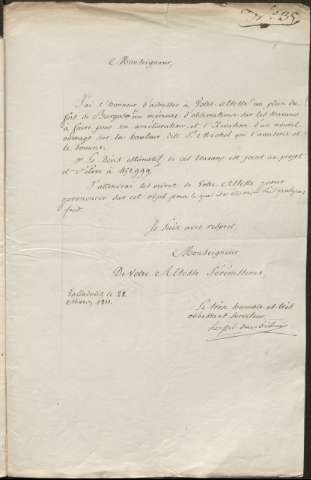 Monseigneur,
J'ai l'honneur d'adresser à Votre Altesse un plan du
fort de Burgos, un mémoire d'observations sur les travaux
à faire pour son amélioration et l'exécution d'un nouvel
ouvrage sur la hauteur dite St. Michel qui l'avoisine et
le domine.
Le Devis estimatif de ces travaux est joint au projet
et s'élève à
J'attendrai les ordres de Votre Altesse pour
prononcer sur cet objet
Je suis avec respect
Monseigneur
De Votre Altesse Sérénissime,
Valladolid, le 22
1811.
Le très humble et très
obéissant serviteur